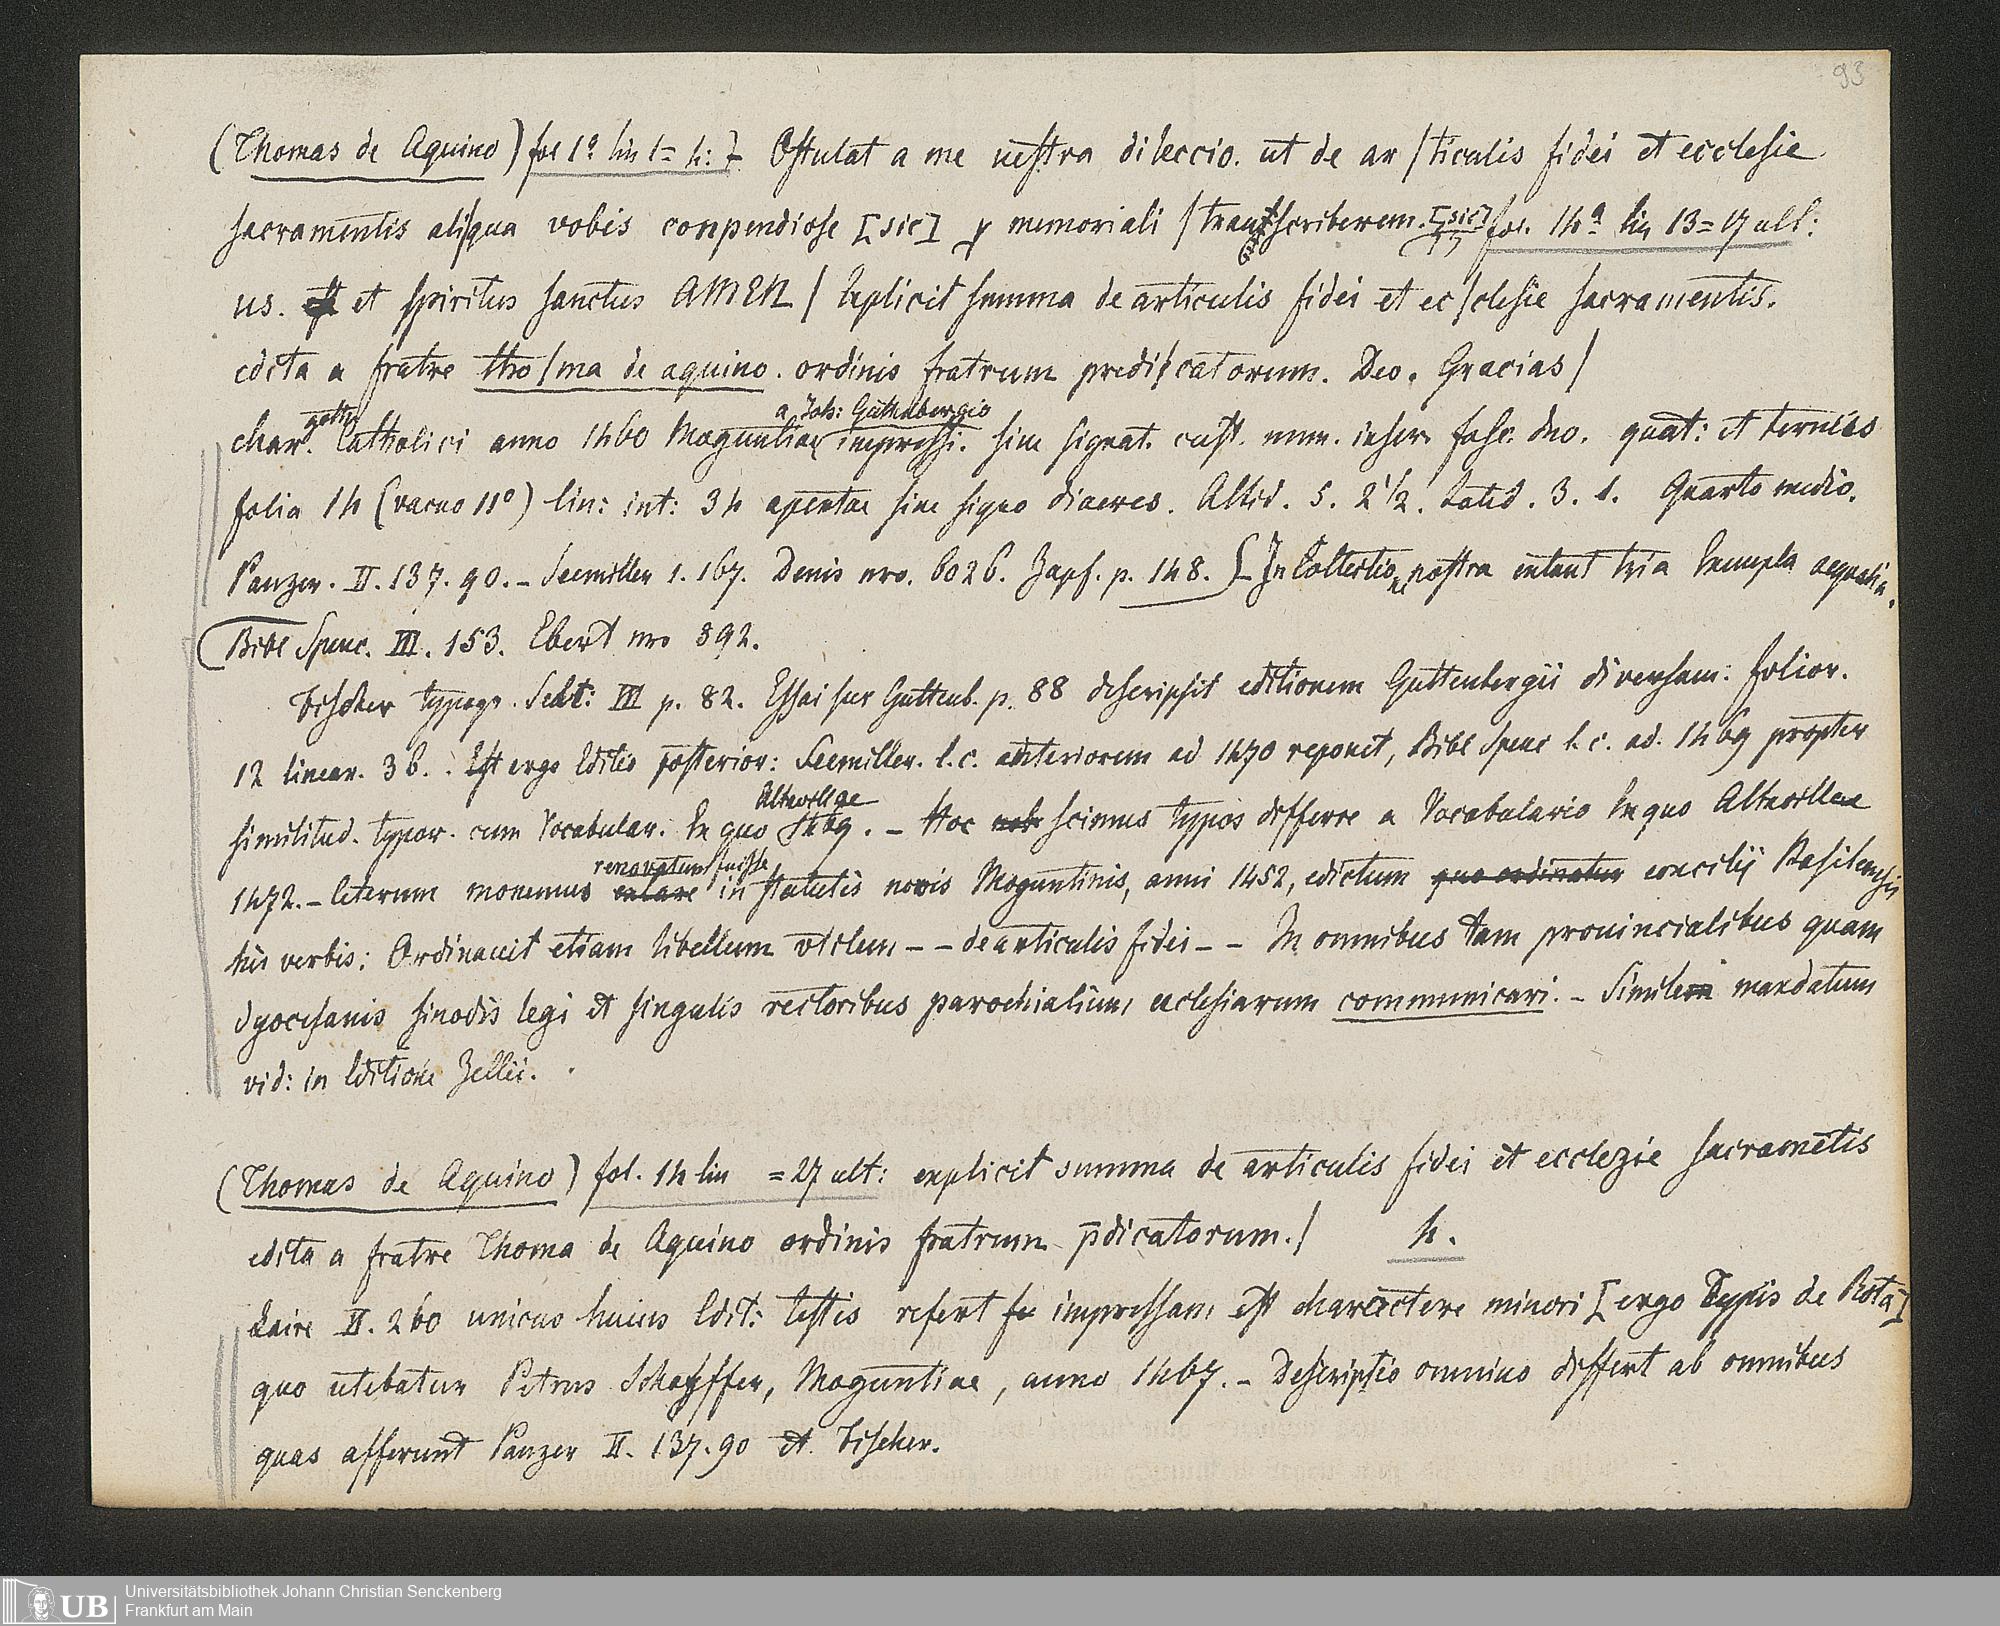 93
(Thomas de Aquino) fol 1ª lin 1= 4: Ostulat a me uestra dileccio. ut de ar/ticulis fidei et ecclesie
sacramentis ali/qua vobis conpendiose [sic] p memoriali / transscriberem. [sic] fol. 14ª lin 13=17 ult:
us. et spiritus sanctus AMEN / Explicit summa de articulis fidei et ec/clesie sacramentis.
edita a fratre tho/ma de aquino. ordinis fratrum predi/catorum. Deo. Gracias /
goth. a Joh: Guthenbergio
char. Catholici anno 1460 Moguntiae impressi. sine signat. cust. num. inser. fasc. duo. quat: et ternius
folia 14 (vacuo 11º) lin: int: 34 apertae sine signo diaeres. Altid. 5. 2 1/2. Latid. 3. 1. Quarto medio.
Panzer. II. 137. 90. – Seemiller 1. 167. Denis nro. 6026. Zapf. p. 148. – In Collectione nostra extant tria Exempla aequalia.
Bibl Spenc. III. 153. Ebert nro 892.
Fischer typogr. Selt: III p. 82. Essai sur Guttenb. p. 88 descripsit editionem Guttenbergii diversam: folior.
12 linear. 36. Est ergo Editio posterior: Seemiller. l. c. anteriorem ad 1470 reponit, Bibl Spenc l. c. ad. 1469 propter
Altavillae
similitud. typor. cum Vocabular. Ex quo 1469. – Hoc scimus typos differre a Vocabulario Ex quo Altavillae
renovatum fuisse
1472. – Ceterum monemus extare in statutis novis Moguntinis, anni 1452, edictum quo ordinatur concilij Basileensis
his verbis: Ordinauit etiam libellum vtilem – – de articulis fidei – – In omnibus tam prouincialibus quam
dyocesanis sinodis legi et singulis rectoribus parochialium ecclesiarum communicari. – Simile mandatum
vid: in Editione Zellii.
(Thomas de Aquino) fol. 14 lin = 27 ult: explicit summa de articulis fidei et ecclezie sacrametis
edita a fratre Thoma de Aquino ordinis fratrum pdicatorum. / 4.
Laire II. 260 unicus huius Edit: testis refert impressam est charactere minori [ergo Typis de Rota]
quo utebatur Petrus Schoyffer, Moguntiae, anno 1467. – Descriptio omnino differt ab omnibus
quas afferunt Panzer II. 137. 90 et Fischer.
UB
Universitätsbibliothek Johann Christian Senckenberg
Frankfurt am Main